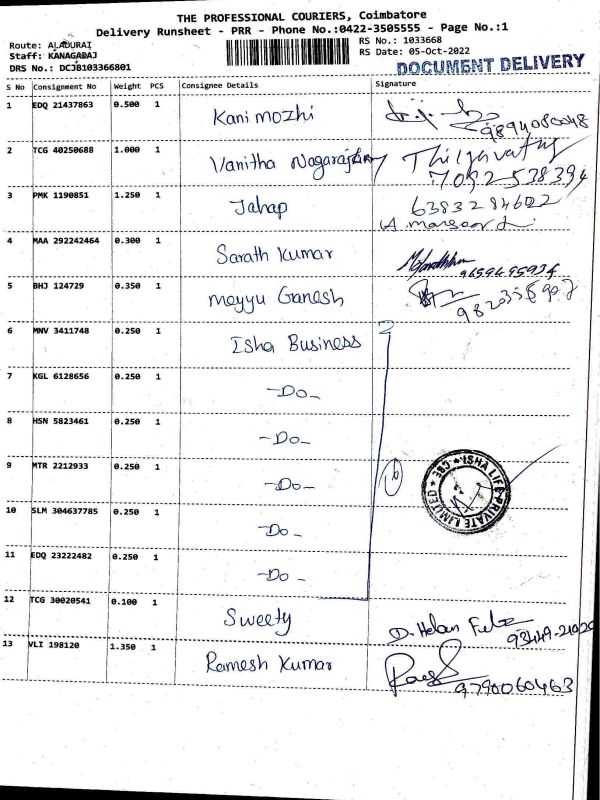 THE PROFESSIONAL COURIERS, Coimbatore
Delivery Runsheet - PRR - Phone No.:0422-3505555 - Page No.:1
Route: ALADURAI
Staff: KANAGARAJ
DRS No.: DCJB103366801
RS No.: 1033668
RS Date: 05-Oct-2022
DOCUMENT DELIVERY
S No Consignment No Weight PCS Consignee Details Signature
1 EDQ 21437863 0.500 1 Kani mozhi 9894080048
2 TCG 40250688 1.000 1 Vanitha Nagarajan Thilgavathy 7092538394
3 PMK 1190851 1.250 1 Jahap 6383284602
A. mansoor
4 MAA 292242464 0.300 1 Sarath Kumar 9659495934
5 BHJ 124729 0.350 1 Meyyu Ganesh
6 MNV 3411748 0.250 1 Isha Business
7 KGL 6128656 0.250 1 -Do-
8 HSN 5823461 0.250 1 -Do-
9 MTR 2212933 0.250 1 -Do-
10 SLM 304637785 0.250 1 -Do-
11 EDQ 23222482 0.250 1 -Do-
ISHA LIFE PRIVATE LIMITED * CBE *
12 TCG 30020541 0.100 1 Sweety D. Helan
13 VLI 198120 1.350 1 Ramesh Kumar 9790060463